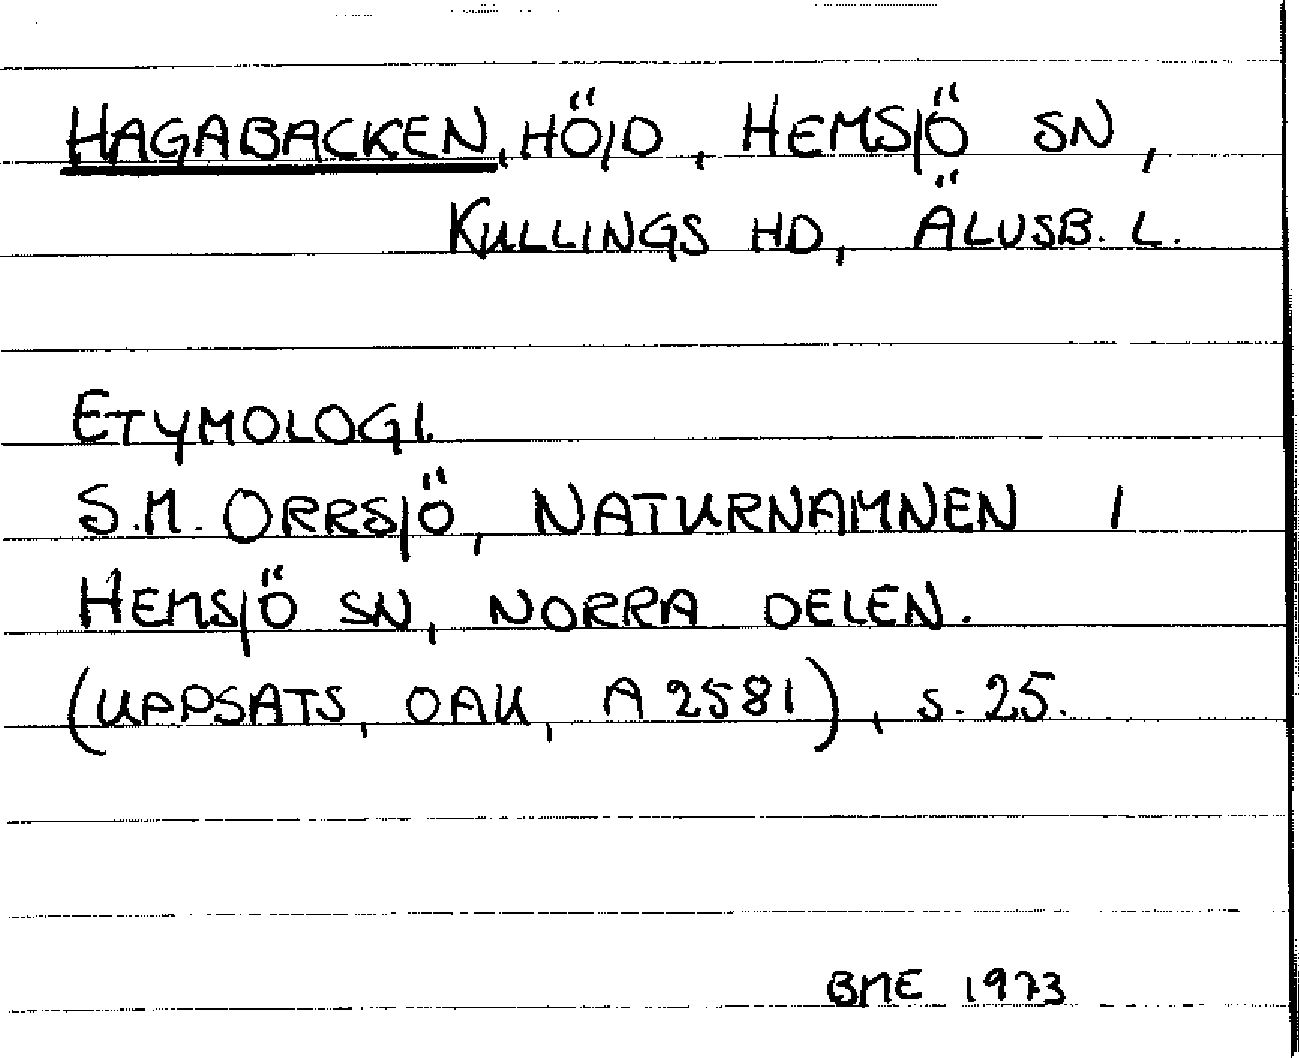 HAGABACKEN, HÖJD, HEMSJÖ SN,
KULLINGS HD, ÄLVSB. L.
ETYMOLOGI.
S.M. ORRSJÖ, NATURNAMNEN I
HEMSJÖ SN, NORRA DELEN.
(UPPSATS, OAU, A 2581), S. 25.
BME 1973